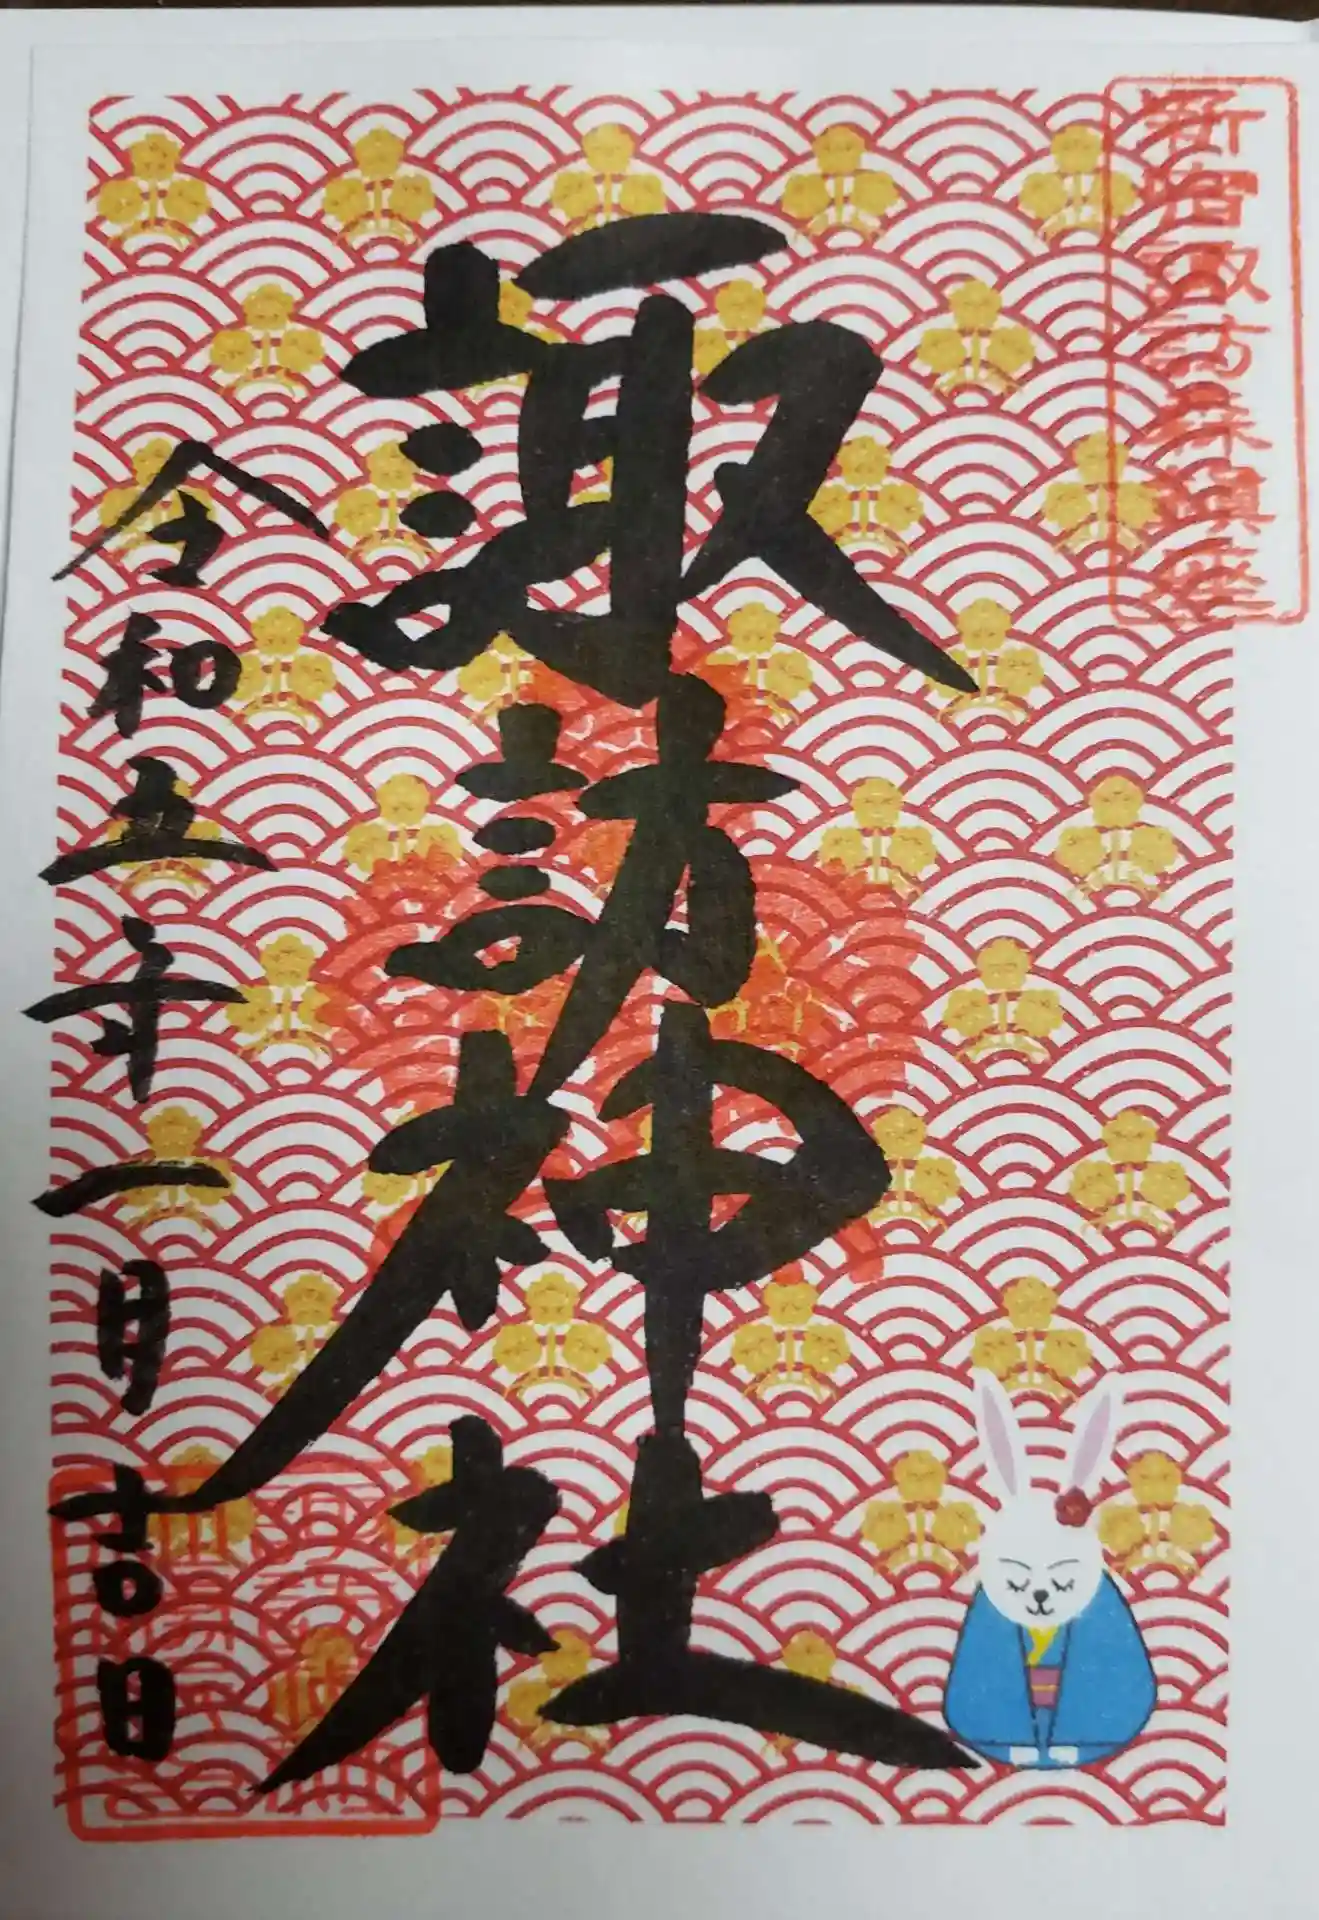 新宿諏訪の森鎮座
諏訪神社
令和五年一月吉日